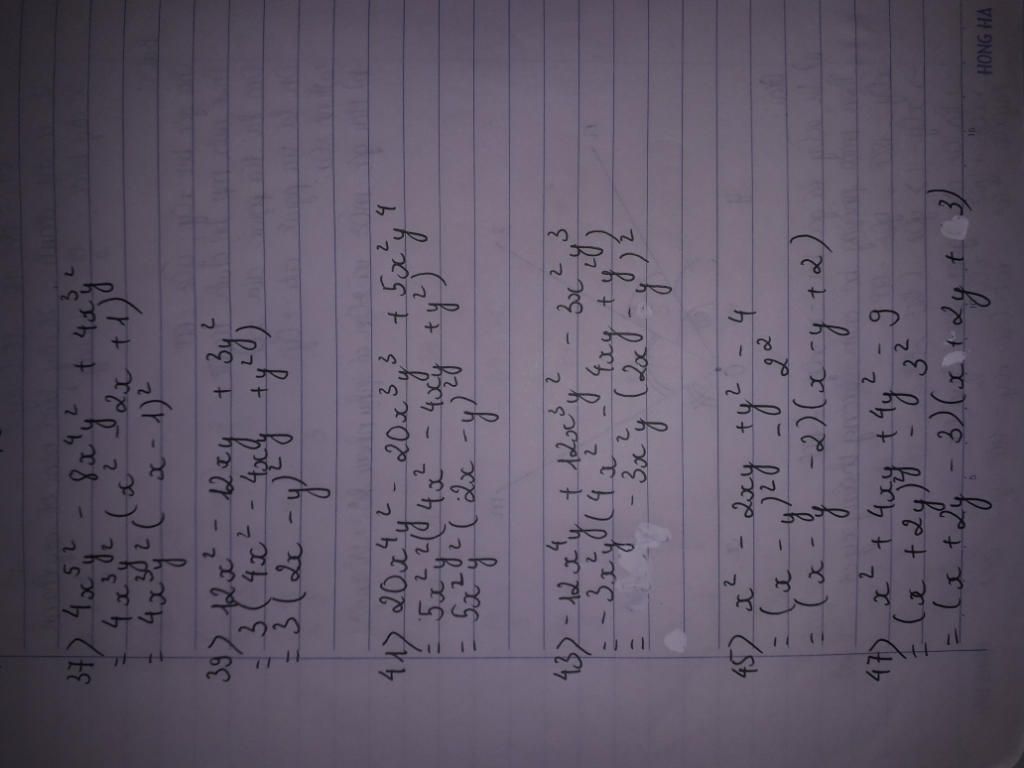 37) 4x⁵y² - 8x⁴y² + 4x³y²
= 4x³y² (x² - 2x + 1)
= 4x³y² (x - 1)²
39) 12x² - 12xy + 3y²
= 3 (4x² - 4xy + y²)
= 3 (2x - y)²
41) 20x⁴y² - 20x³y³ + 5x²y⁴
= 5x²y² (4x² - 4xy + y²)
= 5x²y² (2x - y)²
43) -12x⁴y + 12x³y² - 3x²y³
= -3x²y (4x² - 4xy + y²)
= -3x²y (2x - y)²
45) x² - 2xy + y² - 4
= (x - y)² - 2²
= (x - y - 2)(x - y + 2)
47) x² + 4xy + 4y² - 9
= (x + 2y)² - 3²
= (x + 2y - 3)(x + 2y + 3)
HONG HA